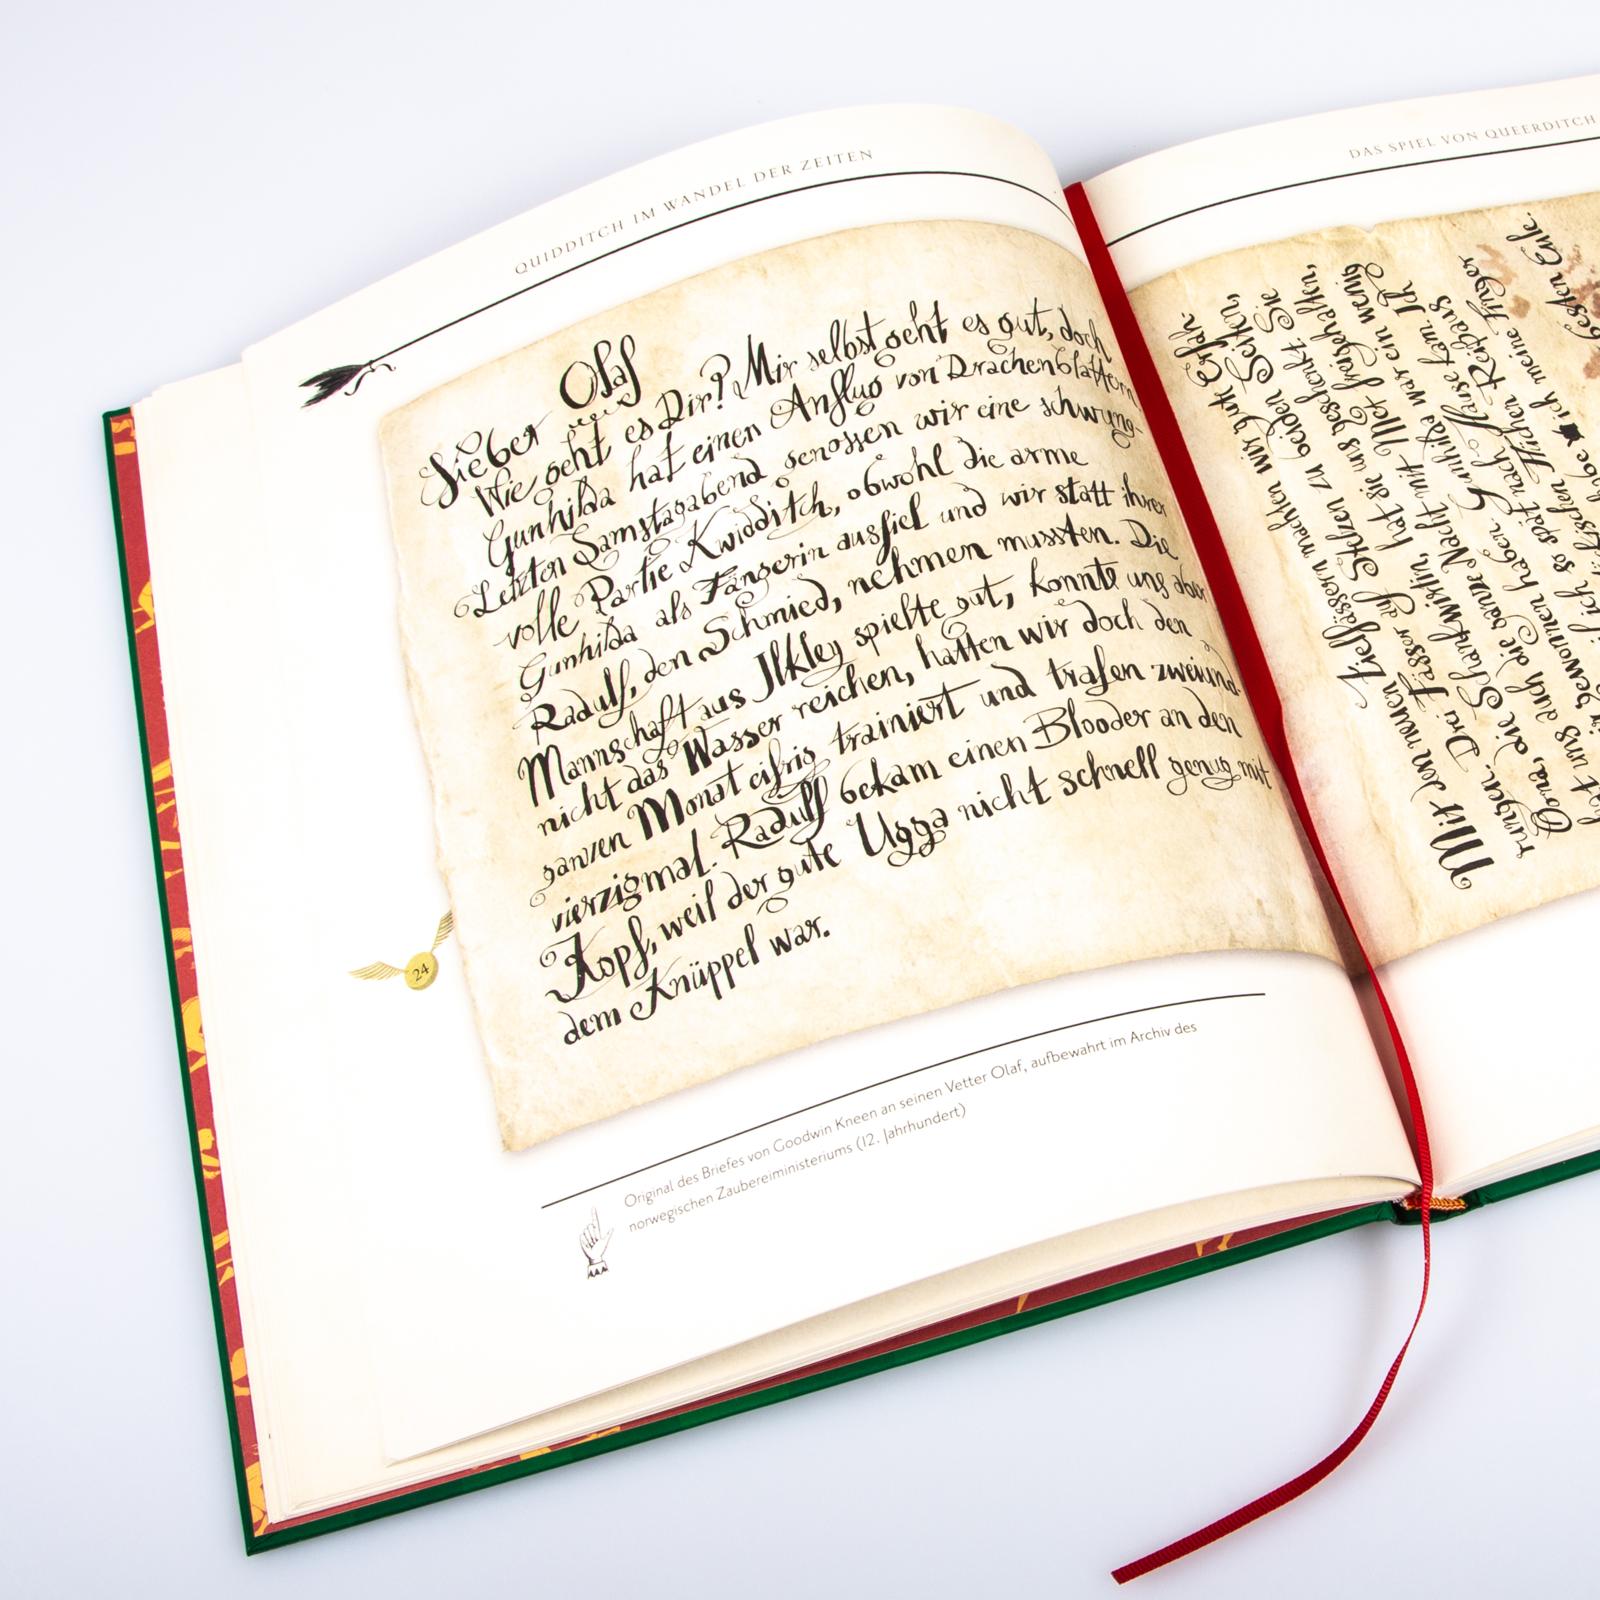 QUIDDITCH IM WANDEL DER ZEITEN
Lieber Olaf
Wie geht es Dir? Mir selbst geht es gut, doch
Gunhilda hat einen Anflug von Drachenblattern.
Letzten Samstagabend genossen wir eine schwung-
volle Partie Kwidditch, obwohl die arme
Gunhilda als Fängerin ausfiel und wir statt ihrer
Radulf, den Schmied, nehmen mussten. Die
Mannschaft aus Ilkley spielte gut, konnte uns aber
nicht das Wasser reichen, hatten wir doch den
ganzen Monat eifrig trainiert und trafen zweiund-
vierzigmal. Radulf bekam einen Blooder an den
Kopf, weil der gute Ugga nicht schnell genug mit
dem Knüppel war.
24
Original des Briefes von Goodwin Kneen an seinen Vetter Olaf, aufbewahrt im Archiv des
norwegischen Zaubereiministeriums (12. Jahrhundert)
DAS SPIEL VON QUEERDITCH
Mit den neuen Zielfässern machten wir gute Erfah-
rungen. Drei Fässer auf Stelzen zu beiden Seiten,
Oona, die Schankwirtin, hat sie uns geschenkt. Sie
uns auch die ganze Nacht mit Met freigehalten,
wir gewonnen haben. Gunhilda war ein wenig
weil ich so spät nach Hause kam. Ich
Flüchen Reißaus
habe ich meine Finger
besten Eule.